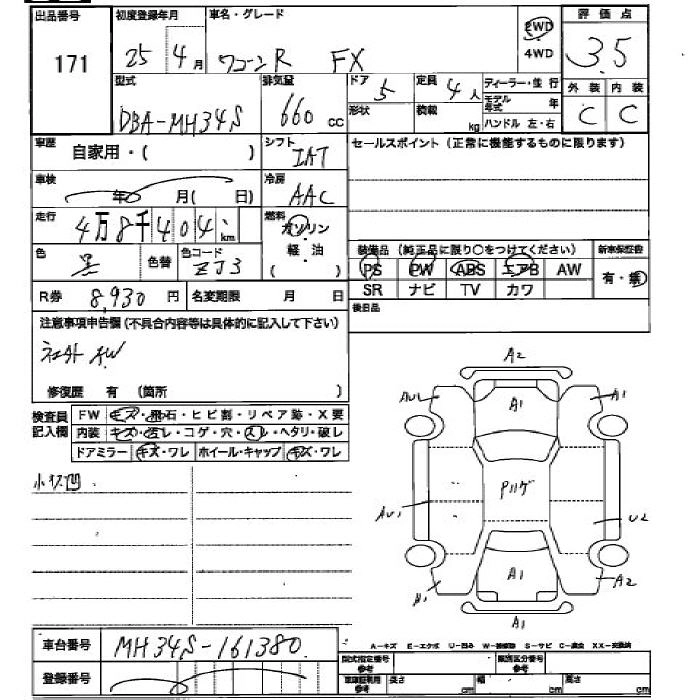 出品番号 初度登録年月 車名・グレード 評価点
171 25年4月 ワゴンR FX 2WD 4WD 3.5
型式 排気量 ドア 5 定員 4人 ディーラー・並行 外装 内装
DBA-MH34S 660cc 形状 積載 kg モデル年式 年 ハンドル 左・右 C C
車歴 自家用・( ) シフト IAT セールスポイント(正常に機能するものに限ります)
車検 年 月( 日) 冷房 AAC
走行 4万8千404km 燃料 ガソリン 軽・油 ( )
色 黒 色替 色コード ZJ3
装備品(純正品に限り○をつけてください) 新車保証書
PS PW ABS エアB AW 有・無
SR ナビ TV カワ
R券 8,930円 名変期限 月 日 後日品
注意事項申告欄(不具合内容等は具体的に記入して下さい)
AW
修復歴 有 (箇所 )
検査員記入欄 FW キズ・飛石・ヒビ割・リペア跡・X要
内装 キズ・汚レ・コゲ・穴・スレ・ヘタリ・破レ
ドアミラー キズ・ワレ ホイール・キャップ キズ・ワレ
小キズ凹
A2
AU1 A1 A1
Pハゲ
AU1 U2
A1 A1 A2
A1
車台番号 MH34S-161380
A-キズ E-エクボ U-凹み W-補修跡 S-サビ C-腐食 XX-交換済
登録番号 型式指定番号 参考 類別区分番号 参考
車庫証明用 参考 長さ cm 幅 cm 高さ cm